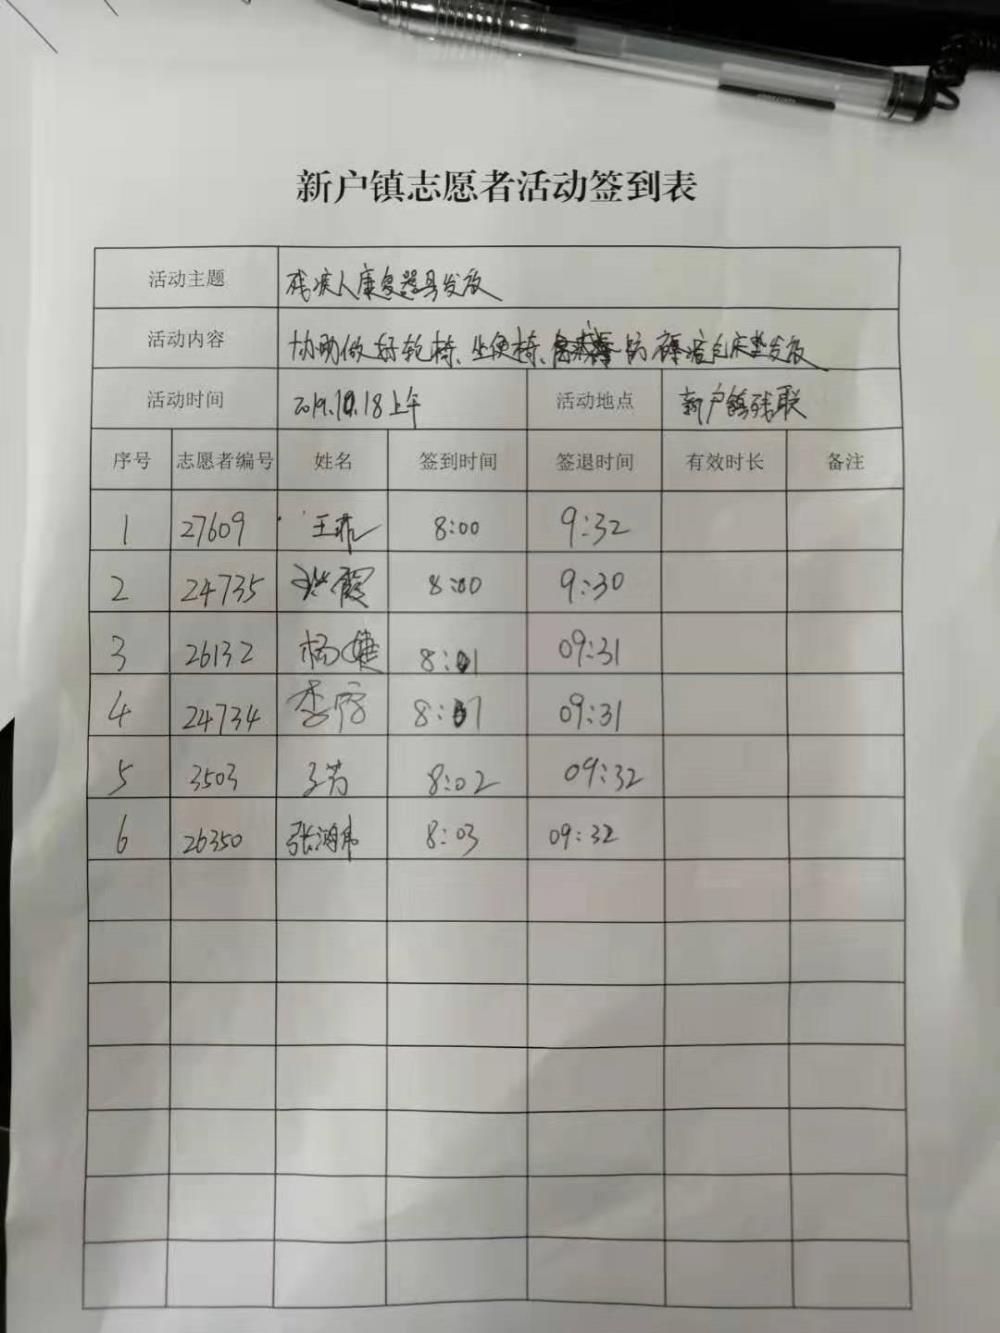 新户镇志愿者活动签到表
活动主题 残疾人康复器具发放
活动内容 协助做好轮椅、坐便椅、防褥疮气床垫发放
活动时间 2019.10.18上午 活动地点 新户镇残联
序号 志愿者编号 姓名 签到时间 签退时间 有效时长 备注
1 27609 王菲 8:00 9:32
2 24735 霞 8:00 9:30
3 26132 杨 8:01 09:31
4 24734 李 8:01 09:31
5 3503 8:02 09:32
6 26350 张鸿伟 8:03 09:32